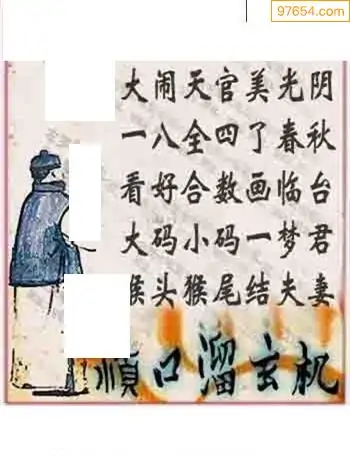 97654.com
大闹天官美光阴
一八全四了春秋
看好合数画临台
大码小码一梦君
猴头猴尾结夫妻
順口溜玄机